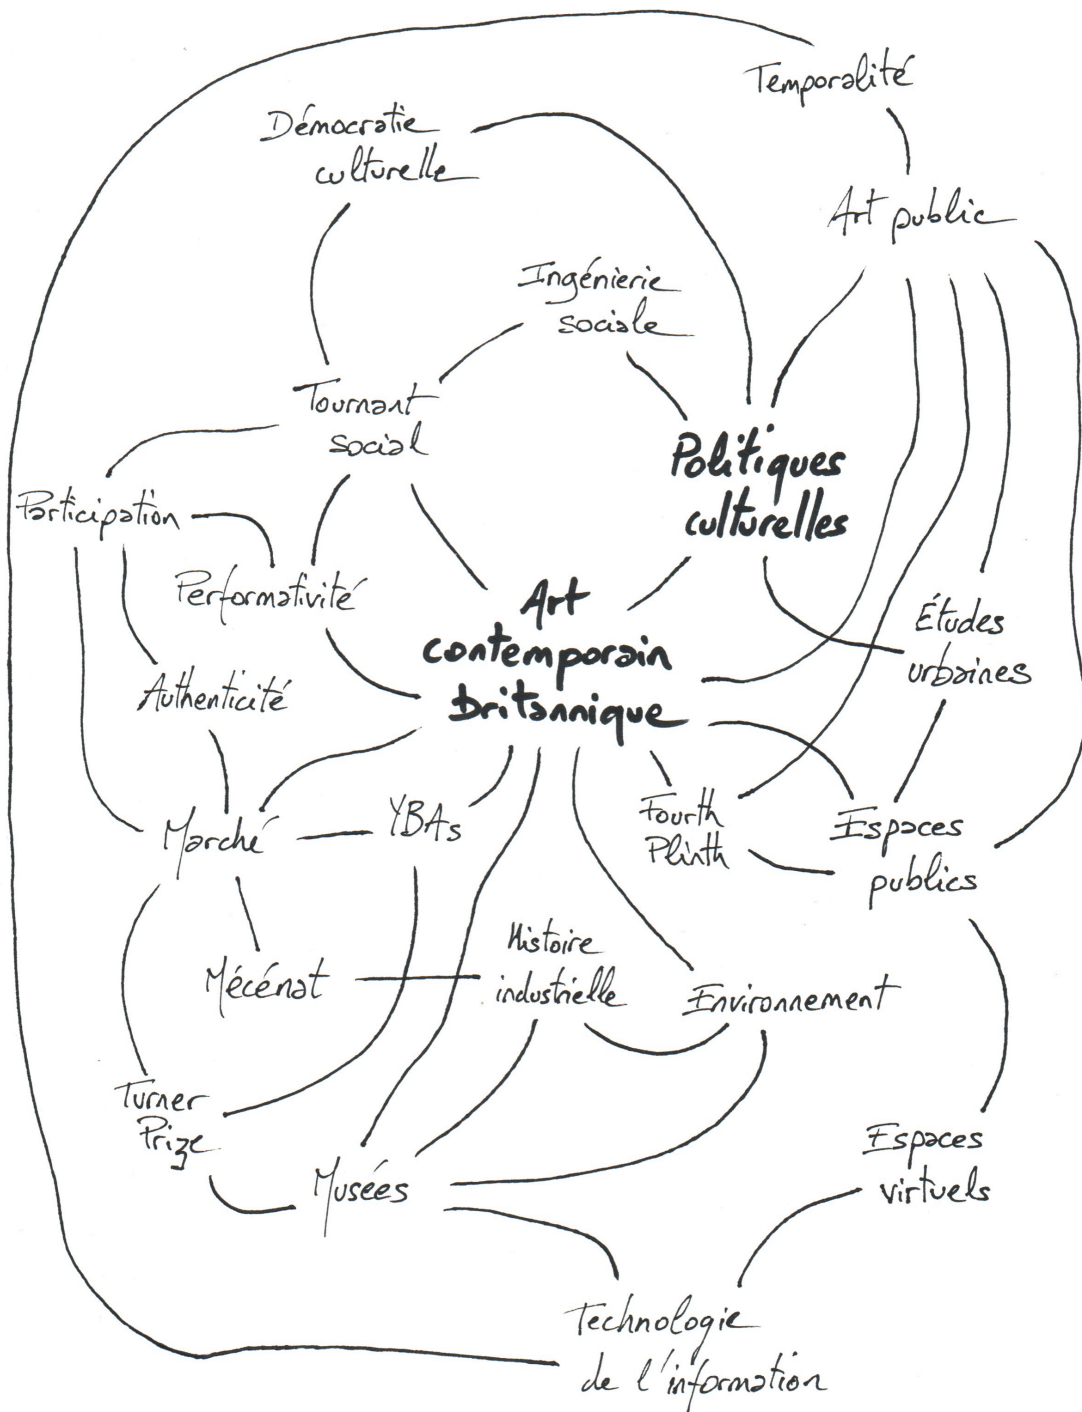 Temporalité
Démocratie
culturelle
Art public
Ingénierie
sociale
Tournant
social
Politiques
culturelles
Participation
Performativité
Art
contemporain
britannique
Études
urbaines
Authenticité
Marché
YBAs
Fourth
Plinth
Espaces
publics
Mécénat
Histoire
industrielle
Environnement
Turner
Prize
Musées
Espaces
virtuels
Technologie
de l'information